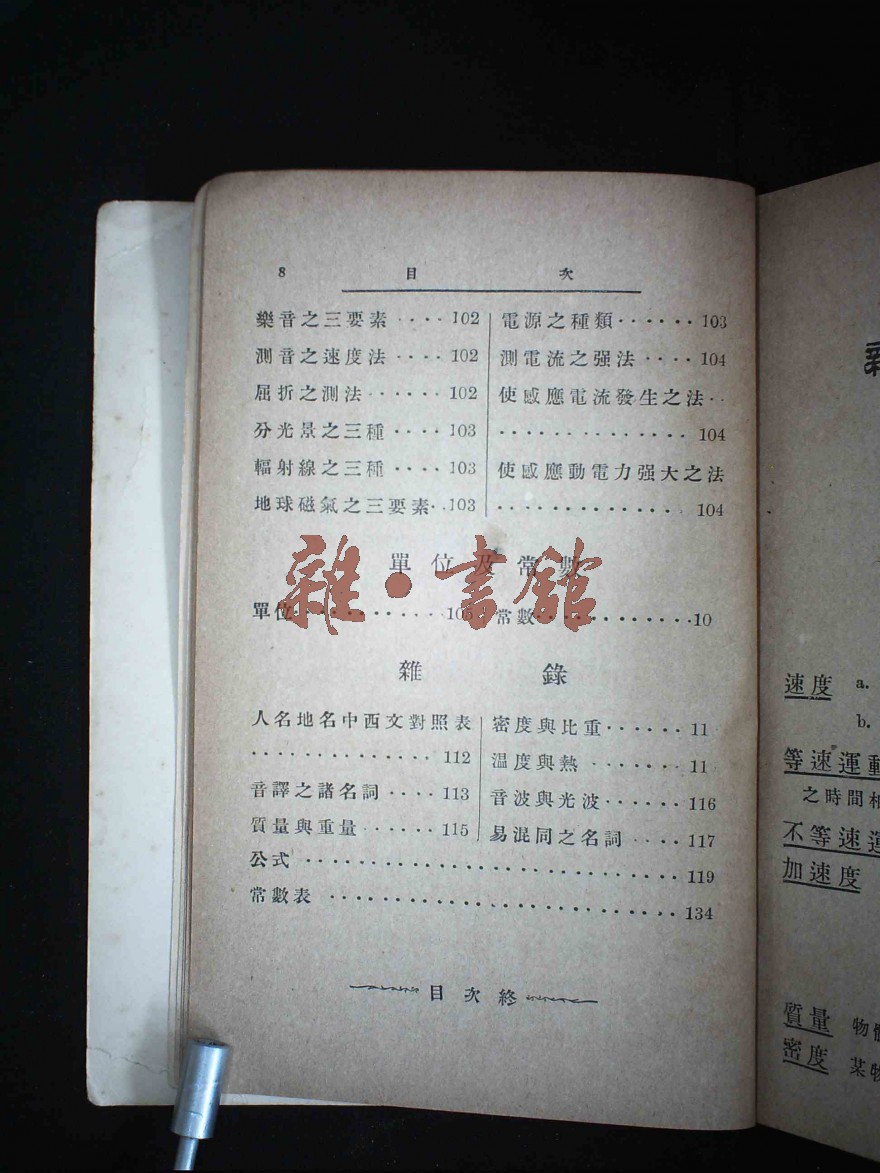 8 目 次
樂音之三要素 ···· 102
測音之速度法 ···· 102
屈折之測法 ······ 102
分光景之三種 ···· 103
輻射線之三種 ···· 103
地球磁氣之三要素 ·· 103
電源之種類 ······ 103
測電流之强法 ···· 104
使感應電流發生之法 ··
·············· 104
使感應動電力强大之法
·············· 104
單位及常數
單位 ············ 105
常數 ············ 10
雜 錄
人名地名中西文對照表
·············· 112
音譯之諸名詞 ···· 113
質量與重量 ······ 115
密度與比重 ······ 11
温度與熱 ······· 11
音波與光波 ······ 116
易混同之名詞 ···· 117
公式 ······························ 119
常數表 ···························· 134
目次終
雜·書館
速度 a.
b.
等速運動
之時間相
不等速運
加速度
質量 物
密度 某物